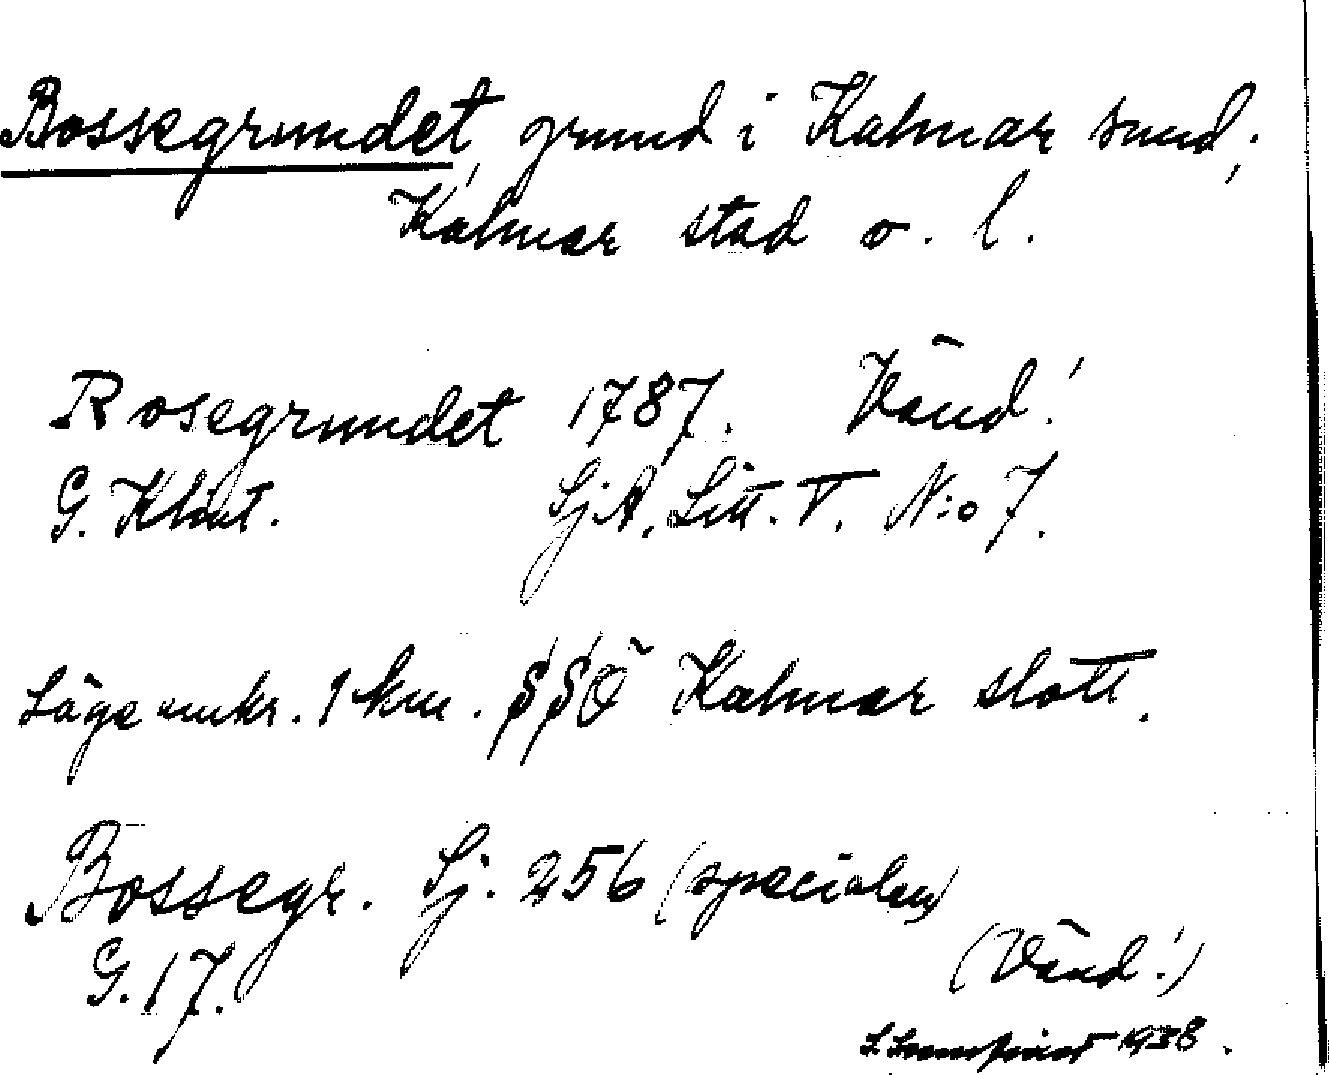 Bossegrundet, grund i Kalmar sund;
Kalmar stad o. l.
Rosegrundet 1787. Vänd!
G. Klint. SjA. Litt. V. N:o 7.
Läge omkr. 1 km. SSÖ Kalmar slott.
Bossegr. Sj. 256 (specialen)
G. 17.
(Vänd!)
1938.